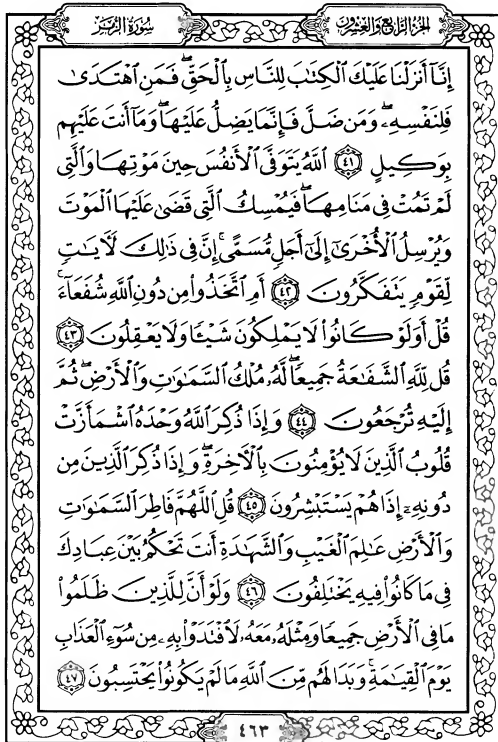 الجزء الرابع والعشرون
سورة الزمر
إِنَّآ أَنزَلۡنَا عَلَيۡكَ ٱلۡكِتَٰبَ لِلنَّاسِ بِٱلۡحَقِّۖ فَمَنِ ٱهۡتَدَىٰ
فَلِنَفۡسِهِۦۖ وَمَن ضَلَّ فَإِنَّمَا يَضِلُّ عَلَيۡهَاۖ وَمَآ أَنتَ عَلَيۡهِم
بِوَكِيلٍ ٤١ ٱللَّهُ يَتَوَفَّى ٱلۡأَنفُسَ حِينَ مَوۡتِهَا وَٱلَّتِي
لَمۡ تَمُتۡ فِي مَنَامِهَاۖ فَيُمۡسِكُ ٱلَّتِي قَضَىٰ عَلَيۡهَا ٱلۡمَوۡتَ
وَيُرۡسِلُ ٱلۡأُخۡرَىٰٓ إِلَىٰٓ أَجَلٖ مُّسَمًّىۚ إِنَّ فِي ذَٰلِكَ لَأٓيَٰتٖ
لِّقَوۡمٖ يَتَفَكَّرُونَ ٤٢ أَمِ ٱتَّخَذُواْ مِن دُونِ ٱللَّهِ شُفَعَآءَۚ
قُلۡ أَوَلَوۡ كَانُواْ لَا يَمۡلِكُونَ شَيۡـٔٗا وَلَا يَعۡقِلُونَ ٤٣
قُل لِّلَّهِ ٱلشَّفَٰعَةُ جَمِيعٗاۖ لَّهُۥ مُلۡكُ ٱلسَّمَٰوَٰتِ وَٱلۡأَرۡضِۖ ثُمَّ
إِلَيۡهِ تُرۡجَعُونَ ٤٤ وَإِذَا ذُكِرَ ٱللَّهُ وَحۡدَهُ ٱشۡمَأَزَّتۡ
قُلُوبُ ٱلَّذِينَ لَا يُؤۡمِنُونَ بِٱلۡأٓخِرَةِۖ وَإِذَا ذُكِرَ ٱلَّذِينَ مِن
دُونِهِۦٓ إِذَا هُمۡ يَسۡتَبۡشِرُونَ ٤٥ قُلِ ٱللَّهُمَّ فَاطِرَ ٱلسَّمَٰوَٰتِ
وَٱلۡأَرۡضِ عَٰلِمَ ٱلۡغَيۡبِ وَٱلشَّهَٰدَةِ أَنتَ تَحۡكُمُ بَيۡنَ عِبَادِكَ
فِي مَا كَانُواْ فِيهِ يَخۡتَلِفُونَ ٤٦ وَلَوۡ أَنَّ لِلَّذِينَ ظَلَمُواْ
مَا فِي ٱلۡأَرۡضِ جَمِيعٗا وَمِثۡلَهُۥ مَعَهُۥ لَٱفۡتَدَوۡاْ بِهِۦ مِن سُوٓءِ ٱلۡعَذَابِ
يَوۡمَ ٱلۡقِيَٰمَةِۚ وَبَدَا لَهُم مِّنَ ٱللَّهِ مَا لَمۡ يَكُونُواْ يَحۡتَسِبُونَ ٤٧
٤٦٣